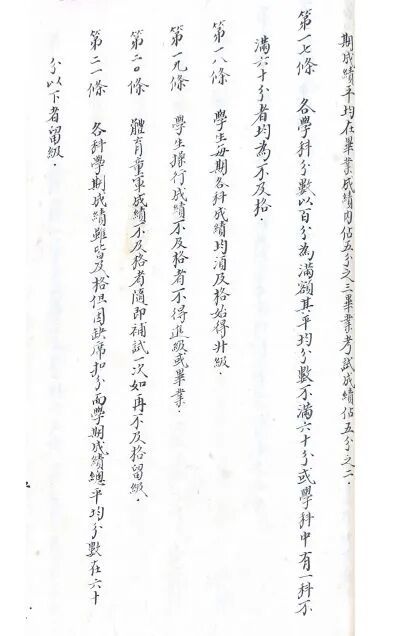 期成績平均在畢業成績內佔五分之三畢業考試成績佔五分之二．
第一七條 各學科分數以百分為滿額其平均分數不滿六十分或學科中有一科不
滿六十分者均為不及格．
第一八條 學生每期各科成績均須及格始得升級．
第一九條 學生操行成績不及格者不得進級或畢業．
第二〇條 體育童軍成績不及格者隨即補試一次如再不及格留級．
第二一條 各科學期成績雖皆及格但因缺席扣分而學期成績總平均分數在六十
分以下者留級．